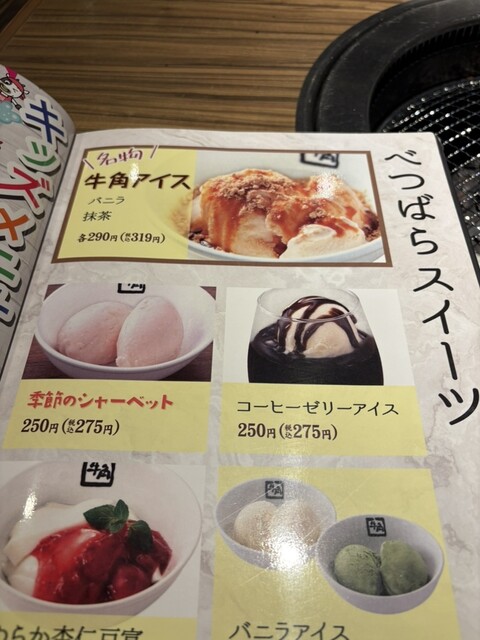 キッズメニュー
べつばらスイーツ
名物
牛角アイス
バニラ
抹茶
各290円(税込319円)
季節のシャーベット
250円(税込275円)
コーヒーゼリーアイス
250円(税込275円)
牛角
わらか杏仁豆腐
牛角
牛角
バニラアイス